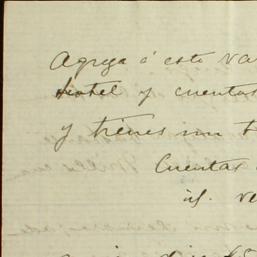 Agrega á esto va
hotel y cuentas
y tienes un t
cuentas
ul. ve